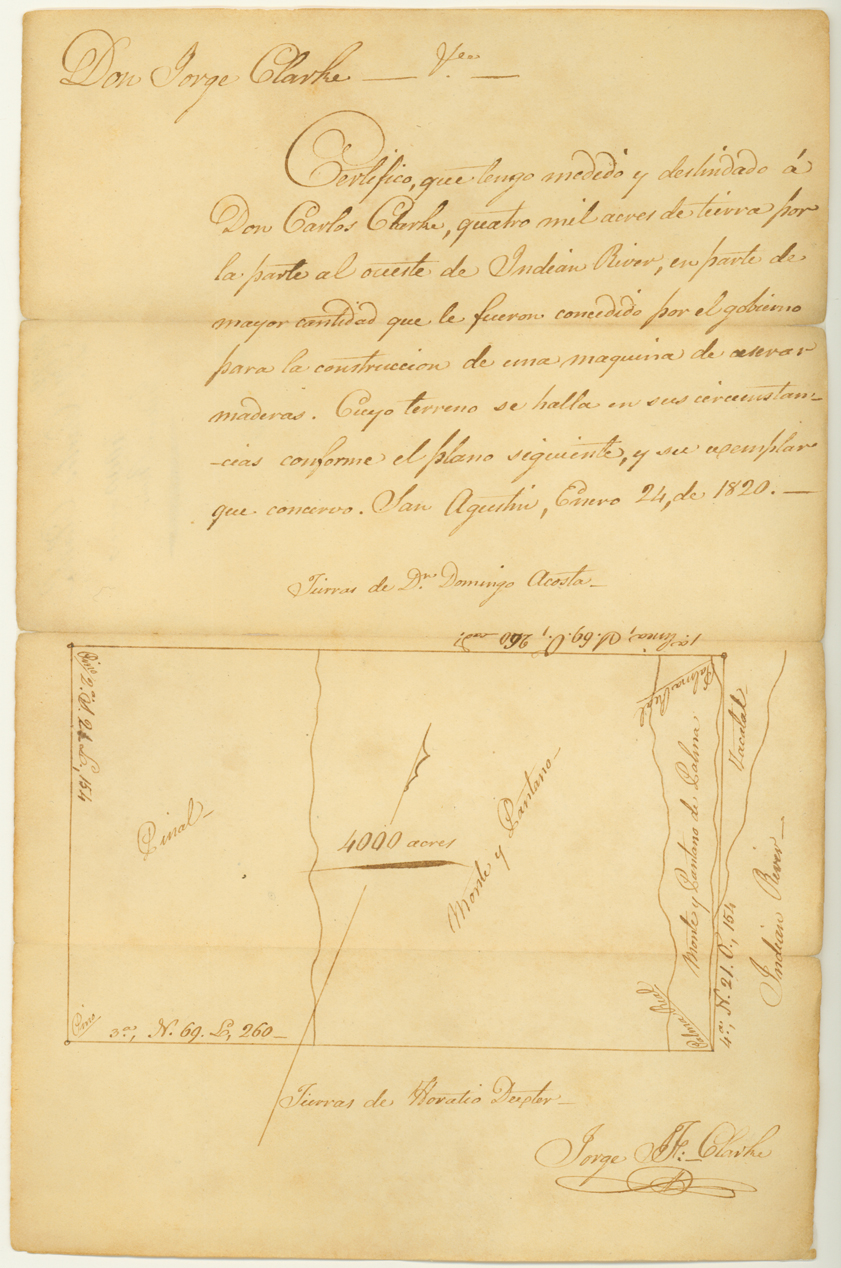 Don Jorge Clarke —
Certifico, que tengo medido y deslindado á
Don Carlos Clarke, quatro mil acres de tierra por
la parte al oueste de Indian River, en parte de
mayor cantidad que le fueron concedido por el gobierno
para la construccion de una maquina de aserar
maderas. Cuyo terreno se halla en sus circunstan-
-cias conforme el plano siguiente, y su exemplar
que concervo. San Agustin, Enero 24, de 1820. —
Tierras de Dn. Domingo Acosta —
1a. linia, S. 69. O, 260
Palma Real
Pino
2a. S. 21. E, 154
Vacalal —
Pinal —
4000 acres
Monte y Pantano —
Monte y Pantano de Palma
Indian River —
4a., N. 21. O., 154
Palma Real
Pino
3a., N. 69. E, 260 —
Tierras de Horatio Dexter —
Jorge J. F. Clarke